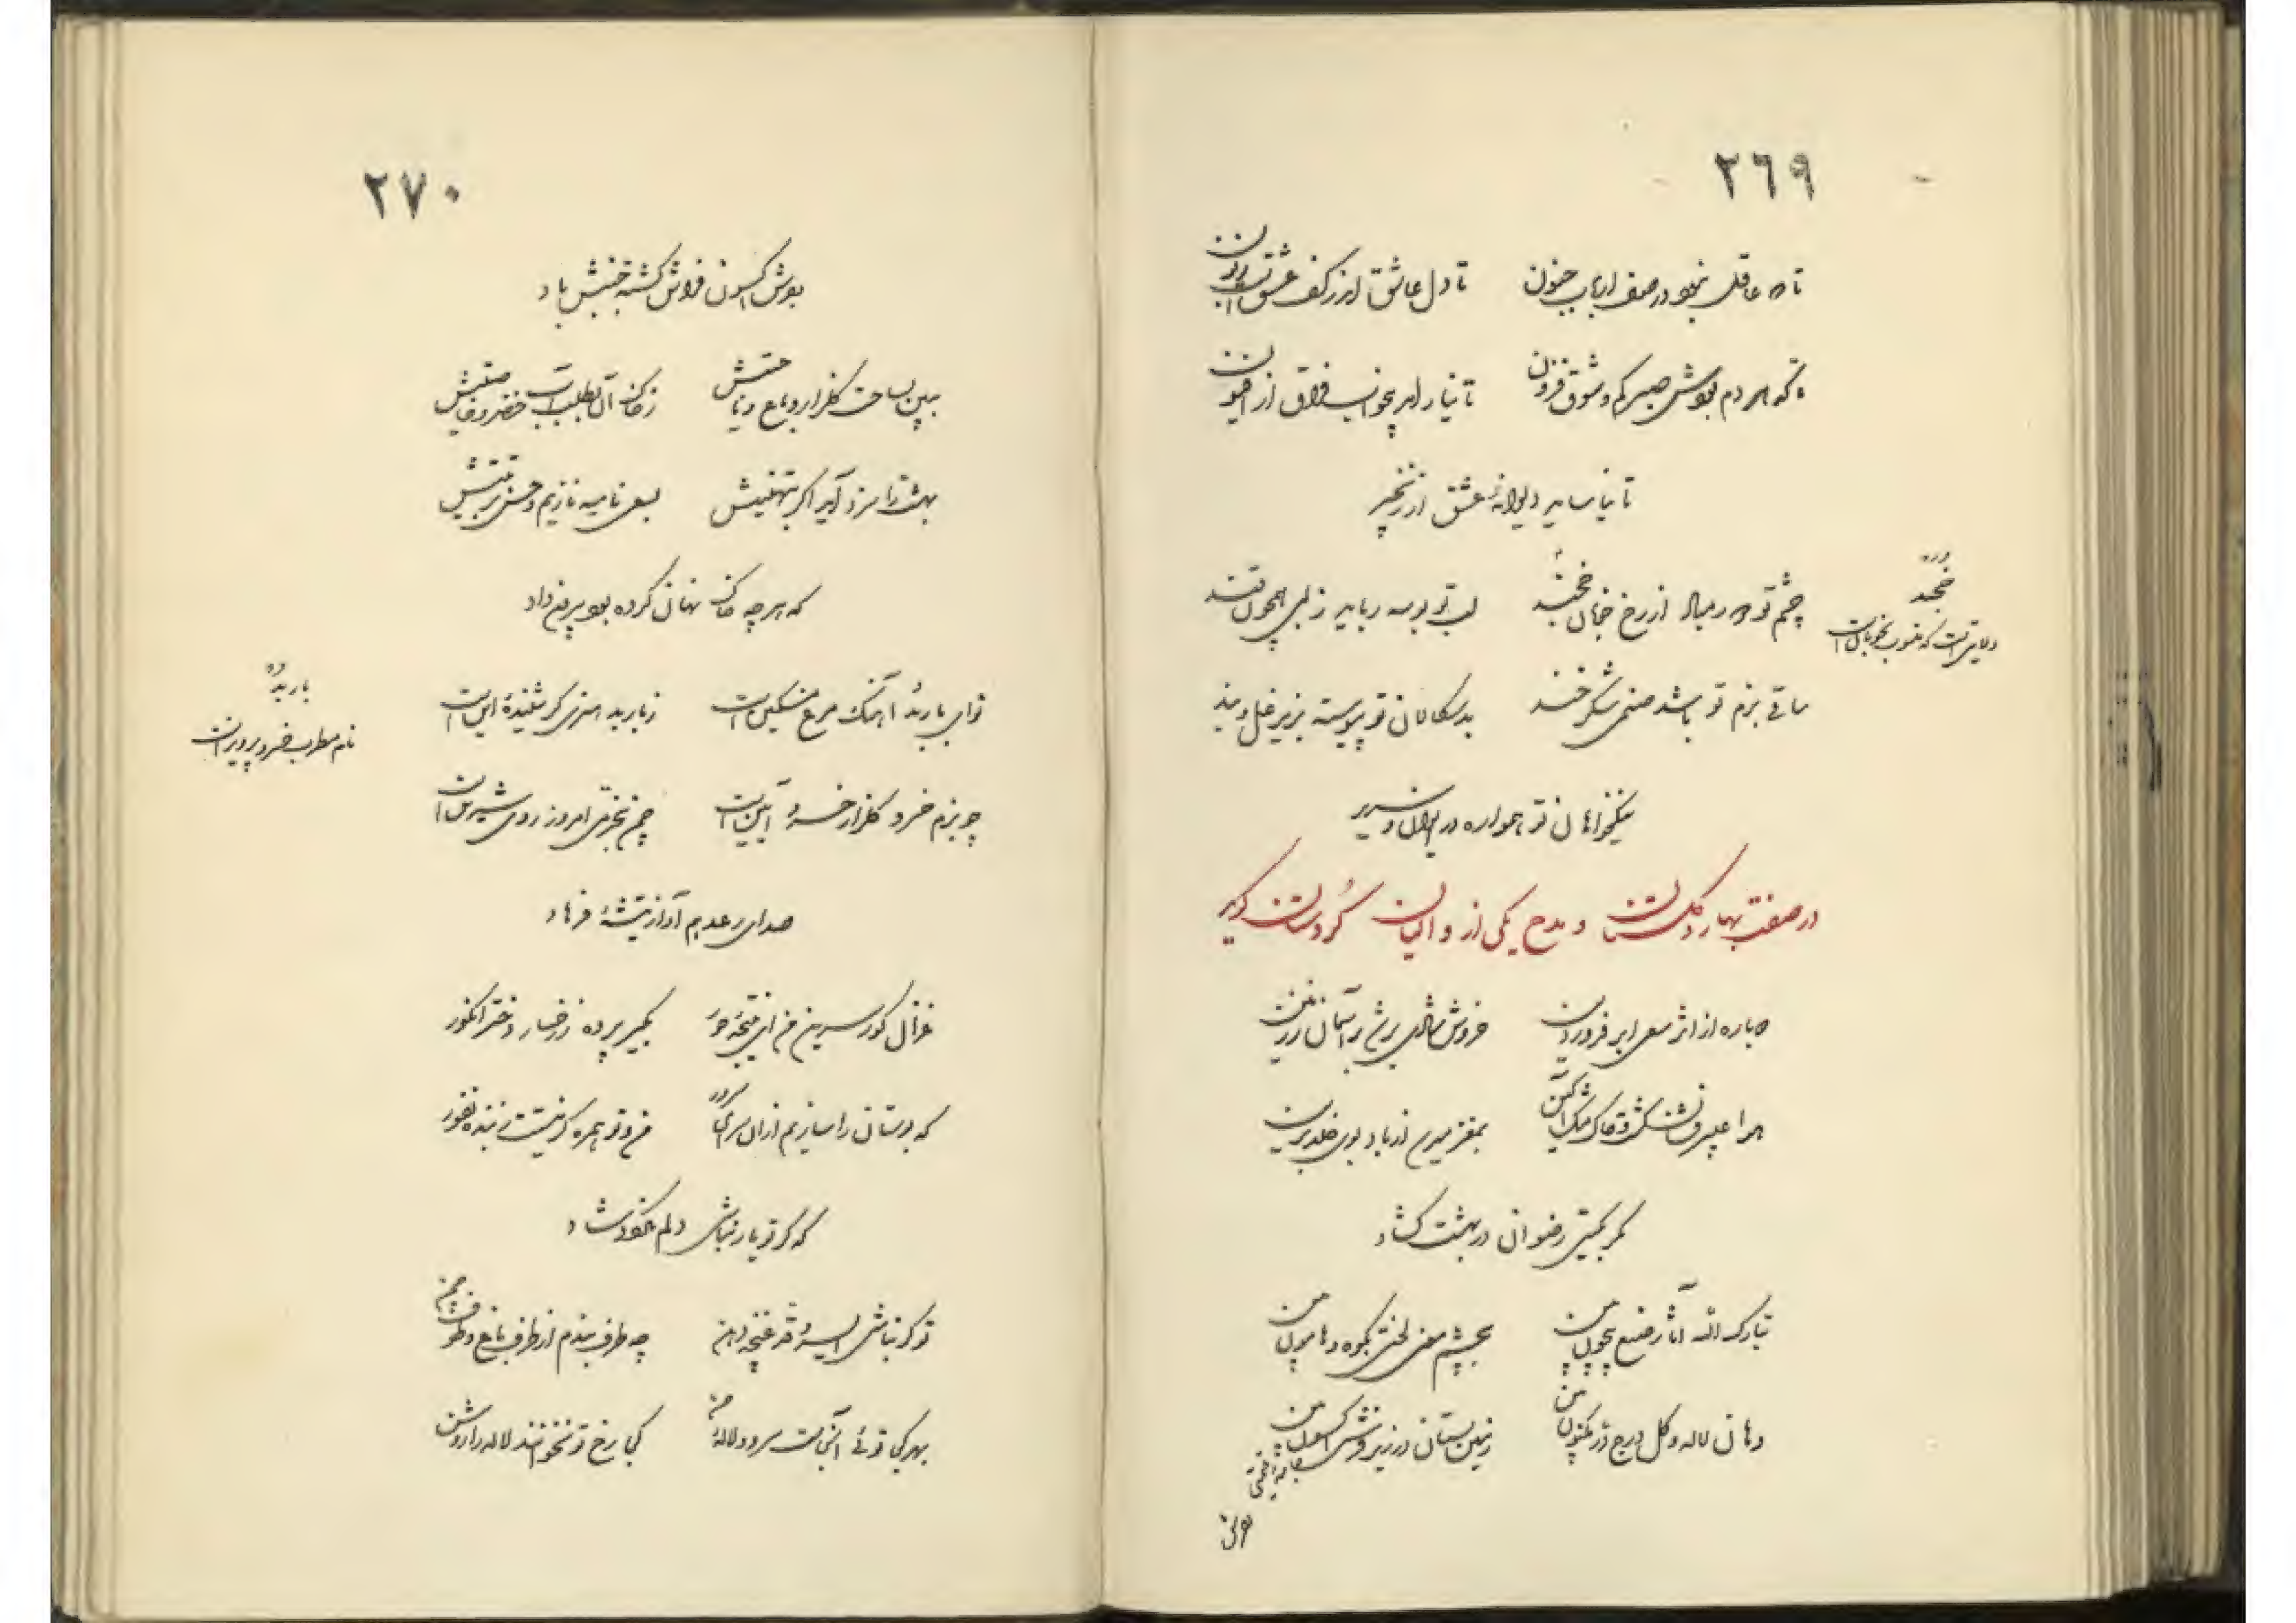 ٢٦٩
تا نه عاقل بنهد در صف ارباب جنون تا دل عاشق از کف عشق است زبون
تا که هر دم بودش صبر کم و شوق فزون تا نیارامد بخواب فراق از افیون
تا نیاساید دیوانهٔ عشق از زنجیر
چشم تو در رخ خوبان خجند لب تو بوسه رباید ز لبی همچون قند
خجند
ولایتی است که منسوب بخوبان است
ساقی بزم تو باشد صنمی شکرخند بدسگالان تو پیوسته بزیر غل و بند
نیکخواهان تو همواره در ایوان و سریر
در صفت بهار و گلستان و مدح یکی از والیان کردستان گوید
دوباره از اثر سعی ابر فروردین خروش شادی برشد بر آسمان ز زمین
هوا عبیرفشان گشت و خاک مشک آگین بمغز میرسد از باد بوی خلد برین
مگر بگیتی رضوان در بهشت گشاد
تبارک الله از آثار صنع بیچون بین بچشم معنی لختی بکوه و هامون بین
دهان لاله و گل درج در مکنون بین زمین بستان در زیر فرش اکسون بین
جامهٔ قیمتی
٢٧٠
بودش اکسون فراش گشته جنبش باد
ببین بساحت گلزار و باغ و ز خاک آن بطلب آب خضر و خاصیتش
بهشت را سزد آید اگر بتهنیتش بسعی نامیه نازیم و حسن تربیتش
که هر چه خاک نهان کرده بود بیرون داد
نوای باربد آهنگ مرغ مسکین است ز باربد هنری گر شنیدهٔ این است
باربد
نام مطرب خسرو پرویز است
چو بزم خسرو گلزار خسروآیین است چمن بخرمی امروز روی شیرین است
صدای رعد هم آواز تیشهٔ فرهاد
غزال گور سرین من ای نتیجهٔ حور بگیر پرده ز رخسار دختر انگور
که بوستان را سازیم از آن سرای سرور من و تو همره گر نیستت ز بنده نفور
که گر تو یار نباشی دلم نخواهد شاد
تو گر نباشی ای سروقد غنچه دهن چه طرف بندم از طرف باغ و طوف چمن
بهر کجا توئی آنجاست سرو و لاله و من که با رخ تو نخوانند لاله را روشن